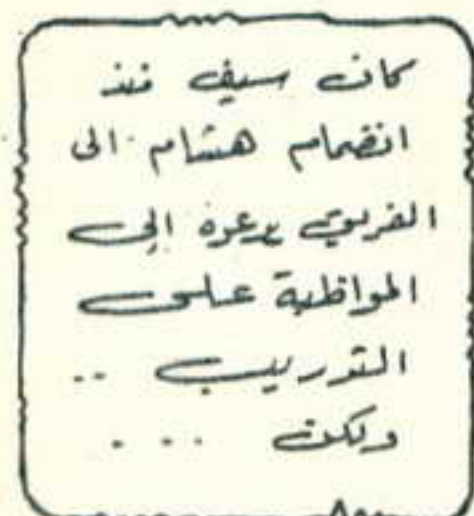 كان سيف منذ
انضمام هشام الى
الفريق يدعوه إلى
المواظبة على
التدريب ..
ولكن ....